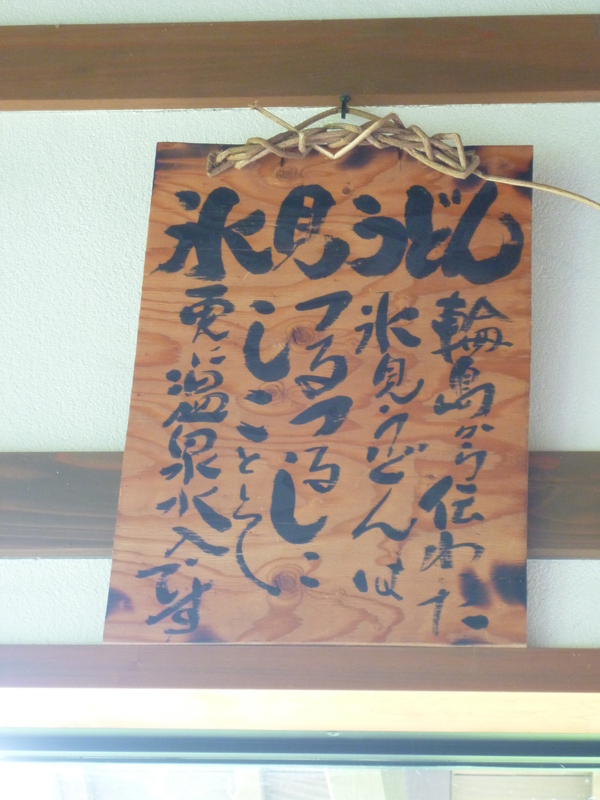 氷見うどん
輪島から伝わた
氷見うどんは
つるつるしこ
しことして
更に温泉水入です